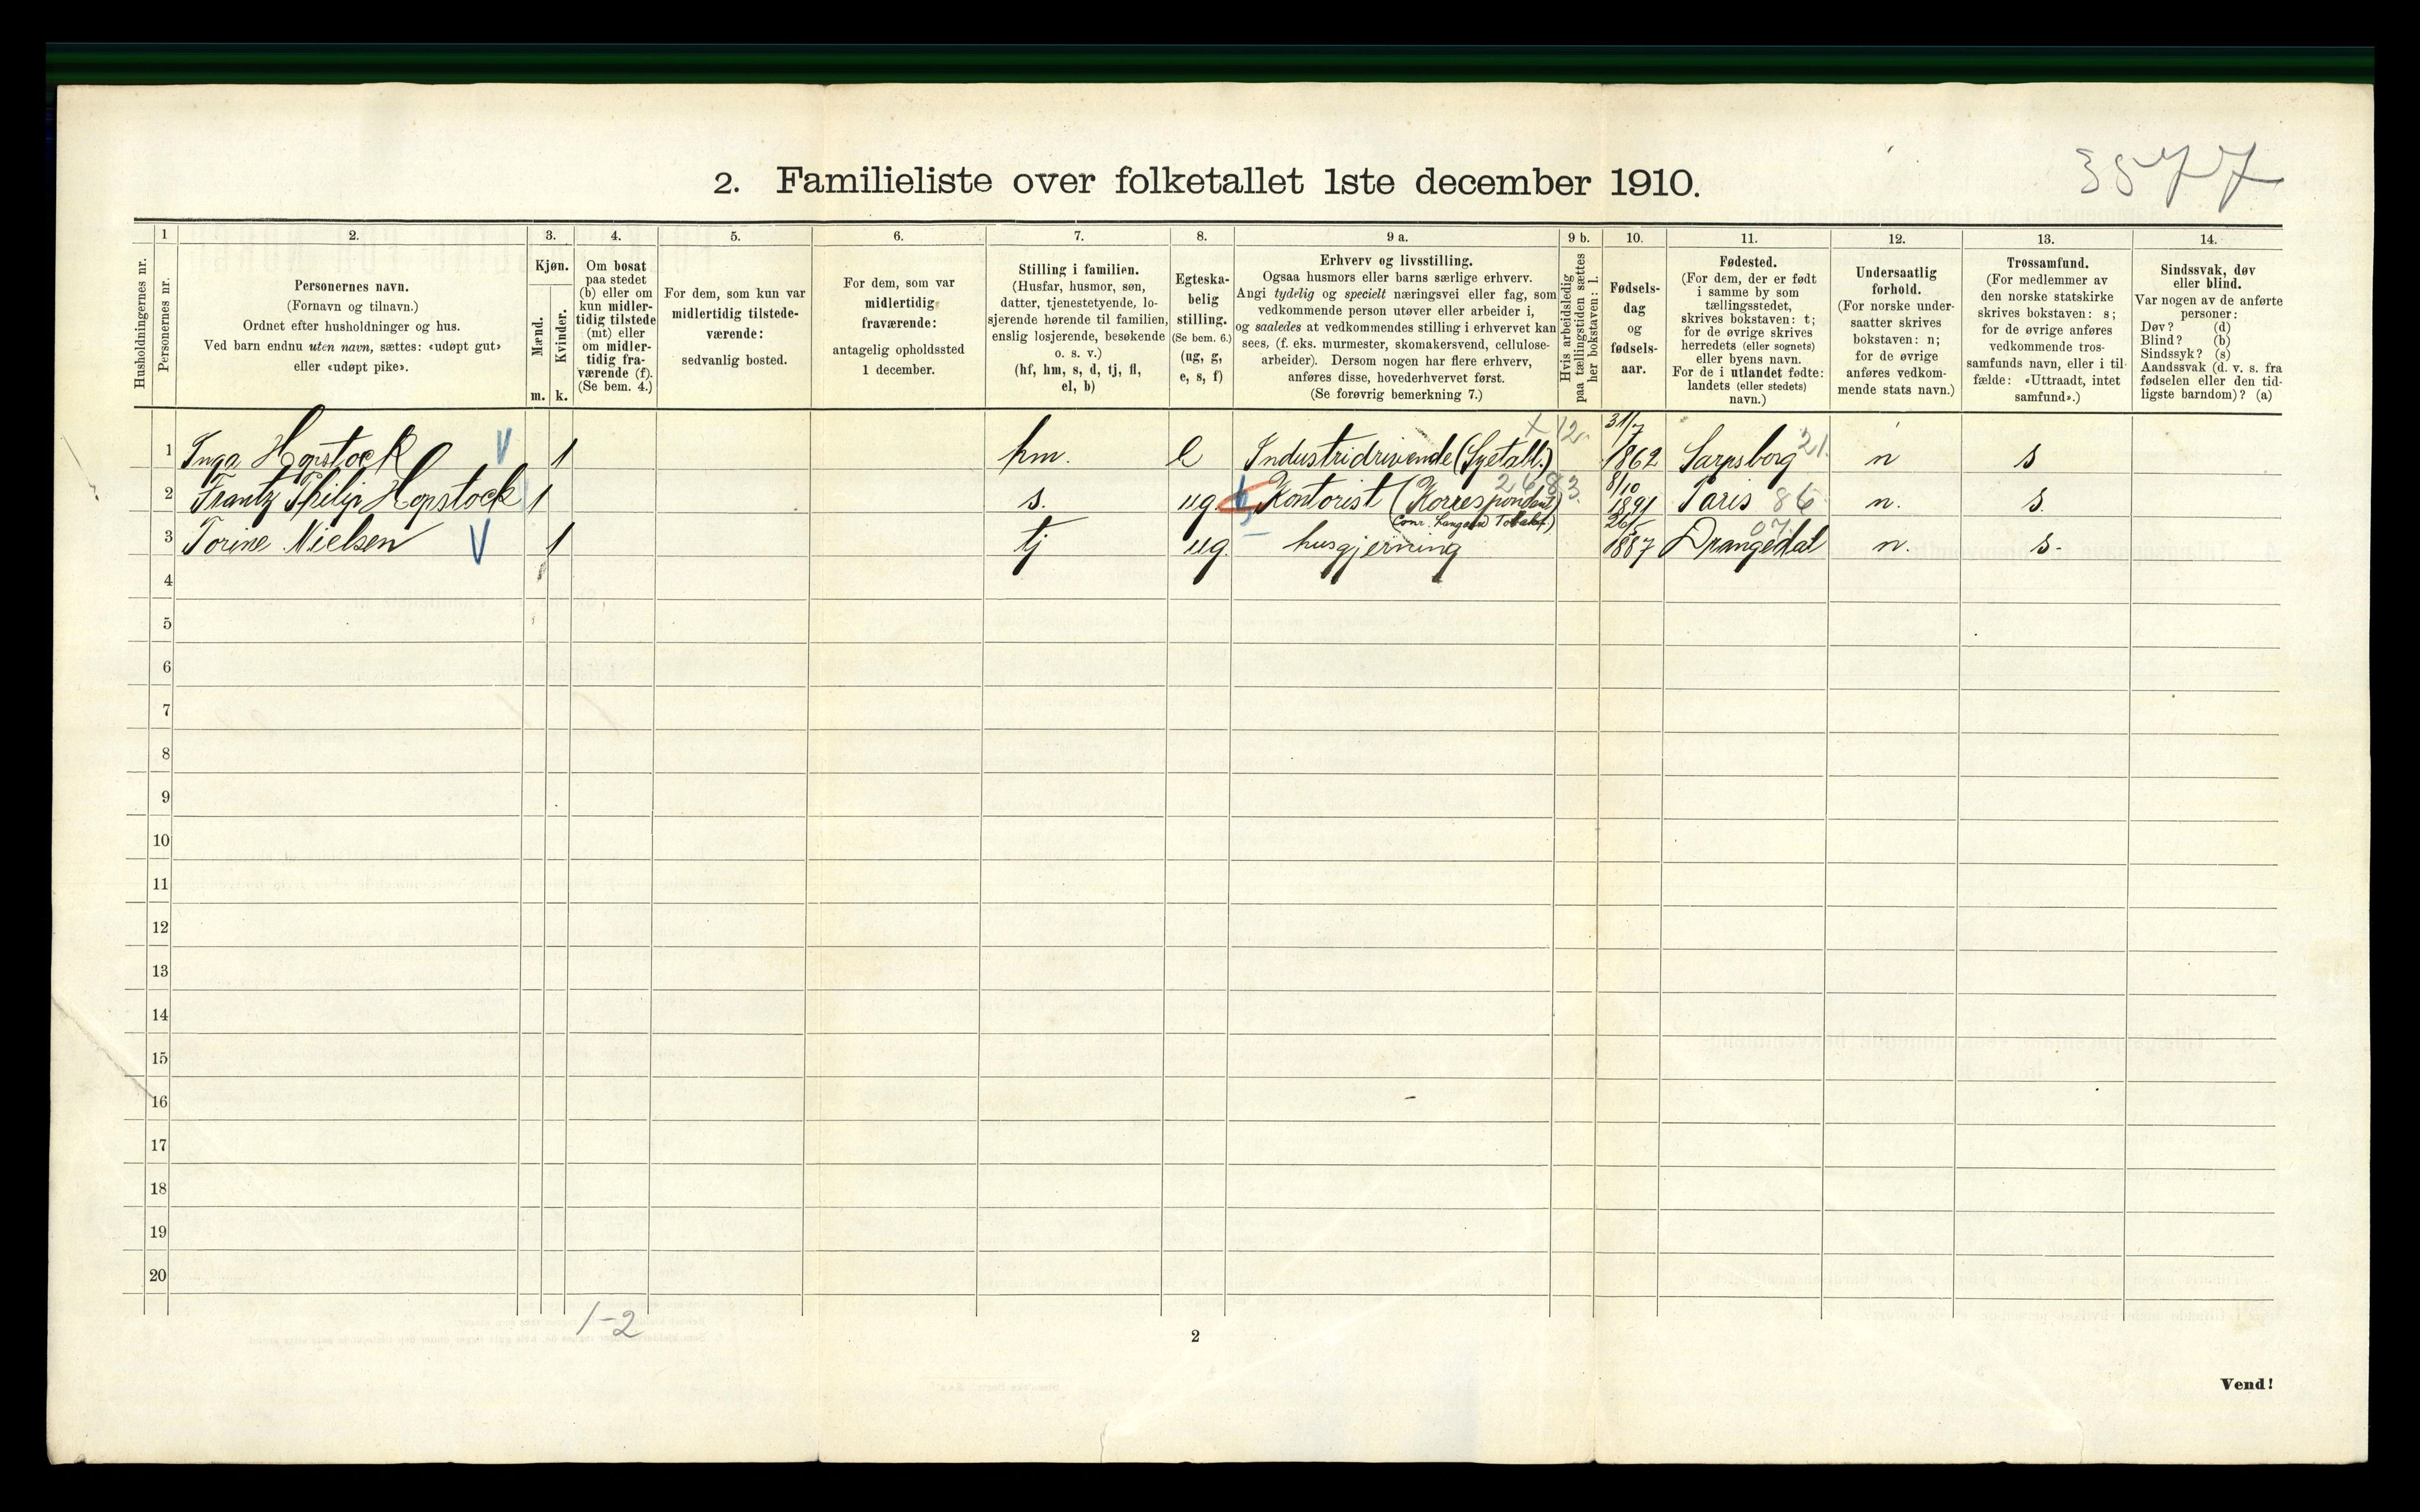 3577
2. Familieliste over folketallet 1ste december 1910.
1 2. 3. 4. 5. 6. 7. 8. 9 a. 9 b. 10. 11. 12. 13. 14.
Husholdningernes nr.
Personernes nr.
Personernes navn.
(Fornavn og tilnavn.)
Ordnet efter husholdninger og hus.
Ved barn endnu uten navn, sættes: «udøpt gut»
eller «udøpt pike».
Kjøn.
Mænd.
Kvinder.
m. k.
Om bosat
paa stedet
(b) eller om
kun midler-
tidig tilstede
(mt) eller
om midler-
tidig fra-
værende (f).
(Se bem. 4.)
For dem, som kun var
midlertidig tilstede-
værende:
sedvanlig bosted.
For dem, som var
midlertidig
fraværende:
antagelig opholdssted
1 december.
Stilling i familien.
(Husfar, husmor, søn,
datter, tjenestetyende, lo-
sjerende hørende til familien,
enslig losjerende, besøkende
o. s. v.)
(hf, hm, s, d, tj, fl,
el, b)
Egteska-
belig
stilling.
(Se bem. 6.)
(ug, g,
e, s, f)
Erhverv og livsstilling.
Ogsaa husmors eller barns særlige erhverv.
Angi tydelig og specielt næringsvei eller fag, som
vedkommende person utøver eller arbeider i,
og saaledes at vedkommendes stilling i erhvervet kan
sees, (f. eks. murmester, skomakersvend, cellulose-
arbeider). Dersom nogen har flere erhverv,
anføres disse, hovederhvervet først.
(Se forøvrig bemerkning 7.)
Hvis arbeidsledig
paa tællingstiden sættes
her bokstaven: l.
Fødsels-
dag
og
fødsels-
aar.
Fødested.
(For dem, der er født
i samme by som
tællingsstedet,
skrives bokstaven: t;
for de øvrige skrives
herredets (eller sognets)
eller byens navn.
For de i utlandet fødte:
landets (eller stedets)
navn.)
Undersaatlig
forhold.
(For norske under-
saatter skrives
bokstaven: n;
for de øvrige
anføres vedkom-
mende stats navn.)
Trossamfund.
(For medlemmer av
den norske statskirke
skrives bokstaven: s;
for de øvrige anføres
vedkommende tros-
samfunds navn, eller i til-
fælde: «Uttraadt, intet
samfund».)
Sindssvak, døv
eller blind.
Var nogen av de anførte
personer:
Døv? (d)
Blind? (b)
Sindssyk? (s)
Aandssvak (d. v. s. fra
fødselen eller den tid-
ligste barndom)? (a)
1 Inga Hopstock V 1 hm. e Industridrivende (Syetabl.) x 12. 31/7 1862 Sarpsborg 21. n s
2 Frantz Philip Hopstock 1 s. ug. Kontorist (Korrespondent) 2683. 8/10 1891 Paris 86 n. s.
(Conr. Langaard Tobaksf.)
3 Torine Nielsen V 1 tj ug. husgjerning 26/5 1887 Drangedal 07. n. s.
4
5
6
7
8
9
10
11
12
13
14
15
16
17
18
19
20
1-2
2
Vend!